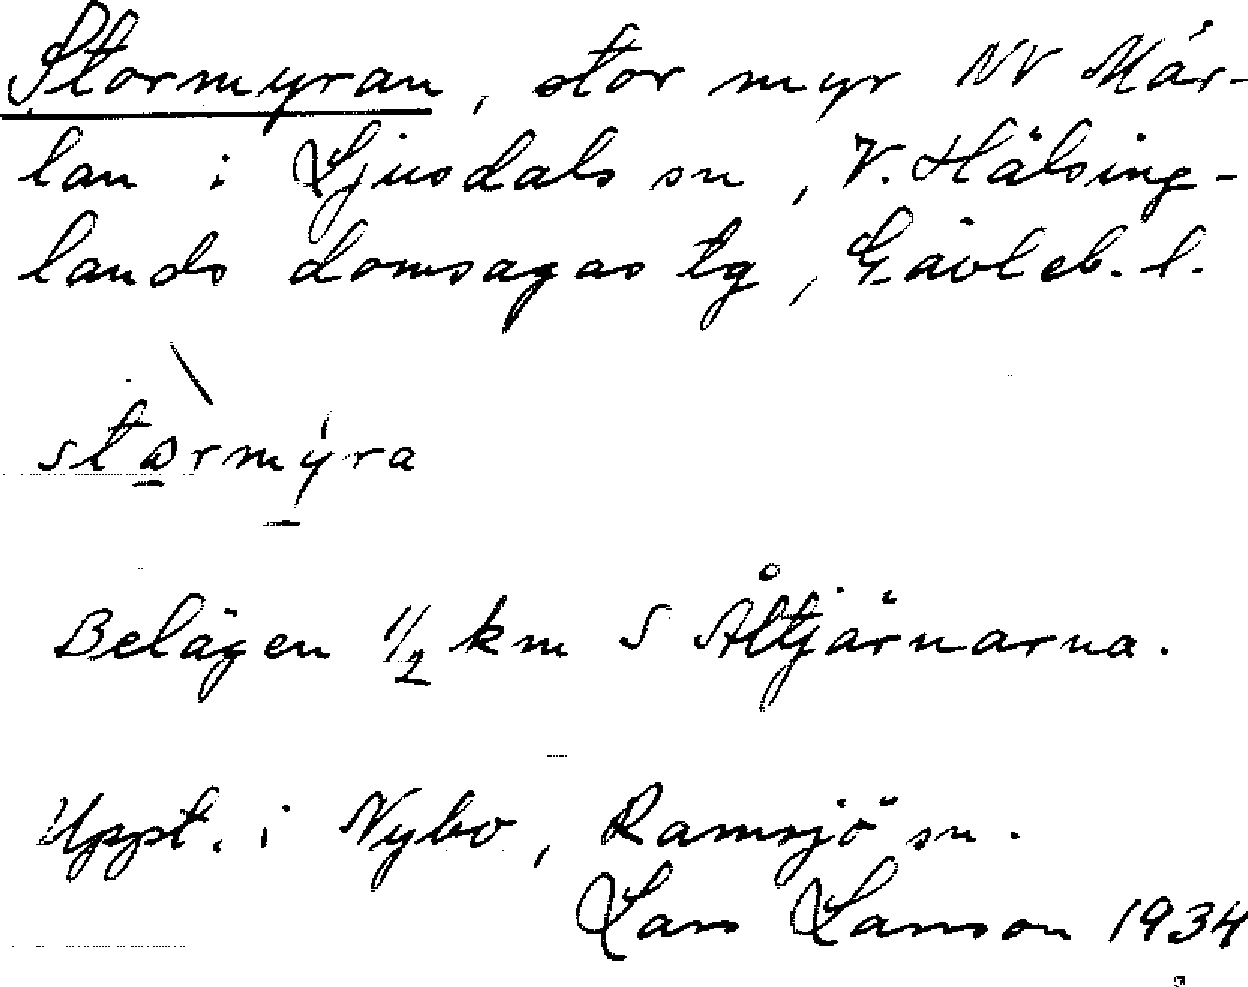 Stormyran, stor myr NV Mår-
lan i Ljusdals sn, V. Hälsing-
lands domsagas tg, Gävleb. l.
stårmýra
Belägen 1/2 km S Åltjärnarna.
Uppt. i Nybo, Ramsjö sn.
Lars Larsson 1934